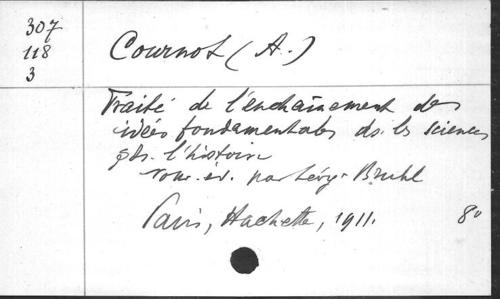 307
118
3
Cournot (A.)
Traité de l'enchaînement des
idées fondamentales ds. les sciences
& ds. l'histoire
nouv. éd. par Lévy-Bruhl
Paris, Hachette, 1911. 8°